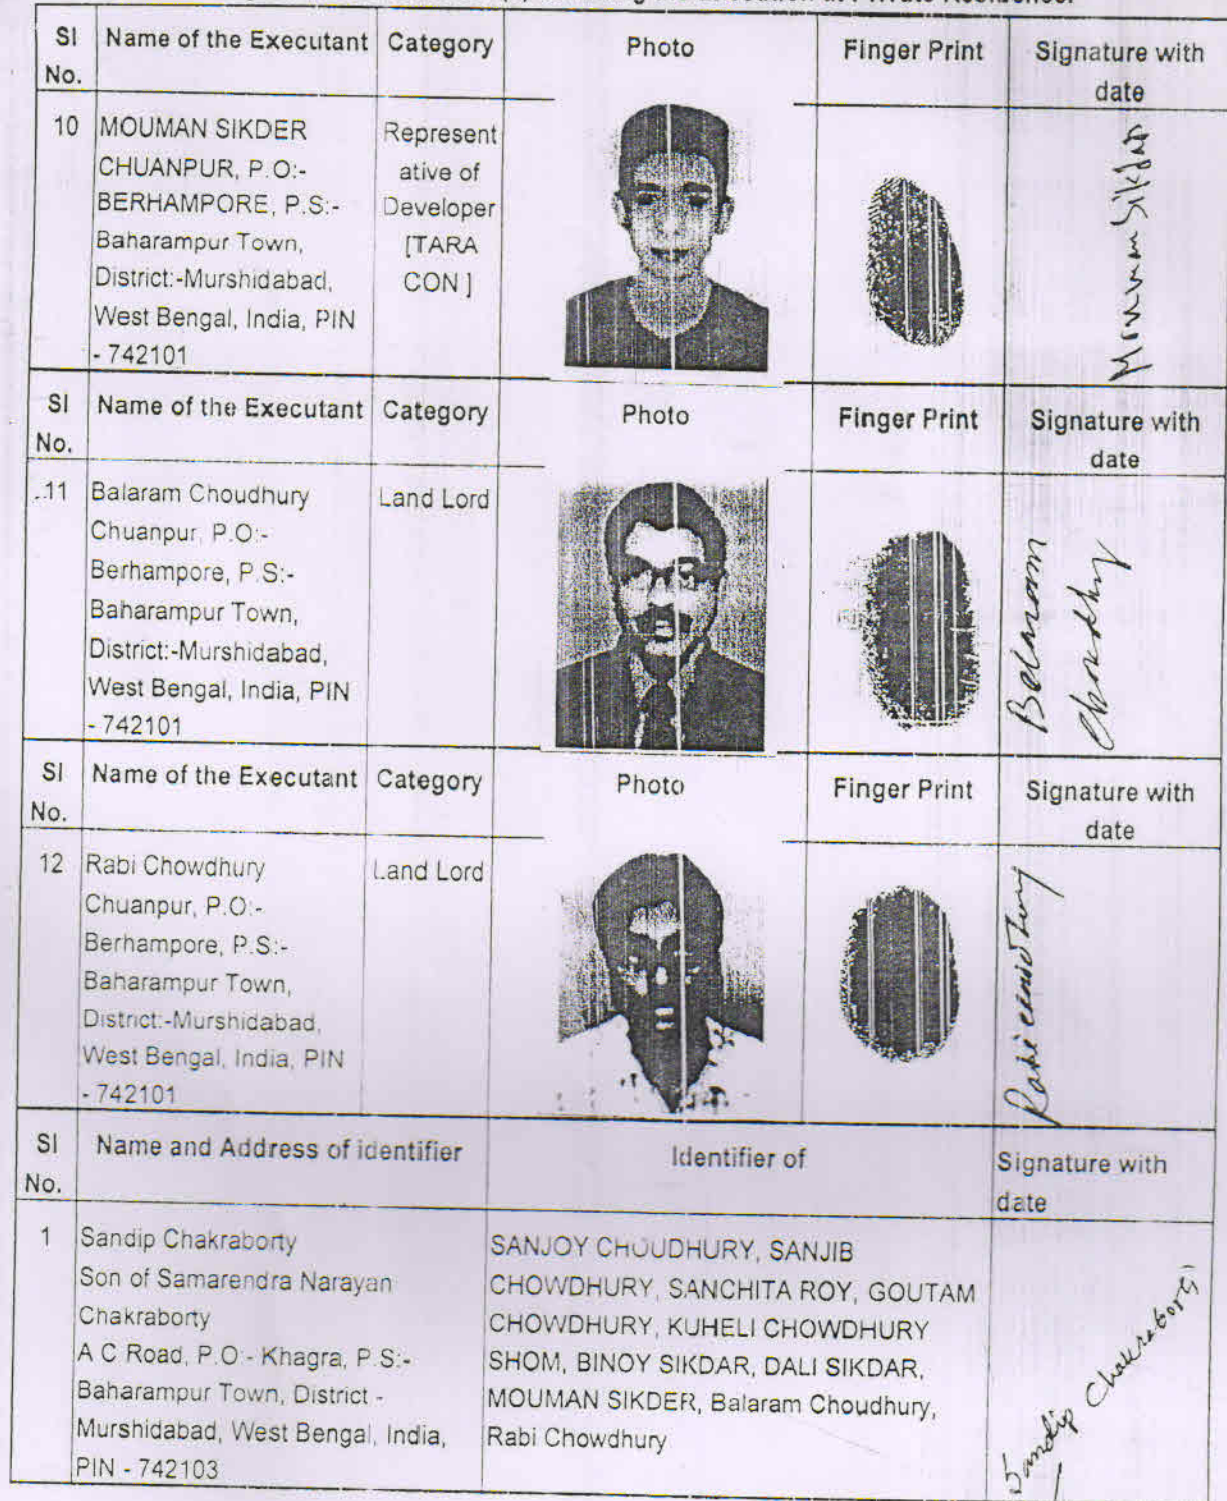 at Private Residence.
Sl No. Name of the Executant Category Photo Finger Print Signature with date
10 MOUMAN SIKDER
CHUANPUR, P.O:-
BERHAMPORE, P.S:-
Baharampur Town,
District:-Murshidabad,
West Bengal, India, PIN
- 742101
Represent
ative of
Developer
[TARA
CON ]
Mouman Sikdar
Sl No. Name of the Executant Category Photo Finger Print Signature with date
11 Balaram Choudhury
Chuanpur, P.O:-
Berhampore, P.S:-
Baharampur Town,
District:-Murshidabad,
West Bengal, India, PIN
- 742101
Land Lord
Balaram
Choudhury
Sl No. Name of the Executant Category Photo Finger Print Signature with date
12 Rabi Chowdhury
Chuanpur, P.O:-
Berhampore, P.S:-
Baharampur Town,
District:-Murshidabad,
West Bengal, India, PIN
- 742101
Land Lord
Sl No. Name and Address of identifier Identifier of Signature with date
1 Sandip Chakraborty
Son of Samarendra Narayan
Chakraborty
A C Road, P.O:- Khagra, P.S:-
Baharampur Town, District:-
Murshidabad, West Bengal, India,
PIN - 742103
SANJOY CHOUDHURY, SANJIB
CHOWDHURY, SANCHITA ROY, GOUTAM
CHOWDHURY, KUHELI CHOWDHURY
SHOM, BINOY SIKDAR, DALI SIKDAR,
MOUMAN SIKDER, Balaram Choudhury,
Rabi Chowdhury
Sandip Chakraborty